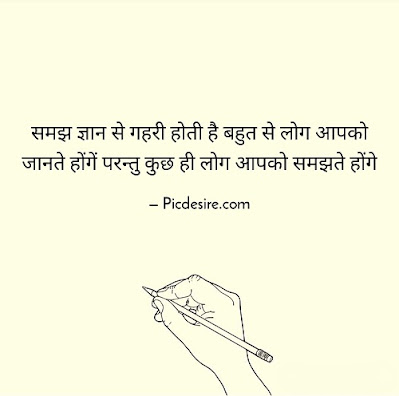 समझ ज्ञान से गहरी होती है बहुत से लोग आपको
जानते होंगें परन्तु कुछ ही लोग आपको समझते होंगे
– Picdesire.com